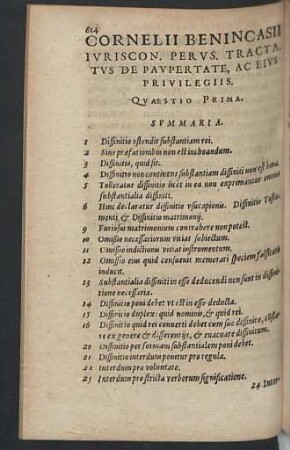 614
CORNELII BENINCASII
IVRISCON. PERVS. TRACTA-
TVS DE PAVPERTATE, AC EIVS
PRIVILEGIIS.
QVAESTIO PRIMA.
SVMMARIA.
1 Diffinitio ostendit substantiam rei.
2 Sine præfationibus non est inchoandum.
3 Diffinitio, quid sit.
4 Diffinitio non continens substantiam diffiniti non est bona.
5 Tolleratur diffinitio licèt in ea non exprimantur omnia
substantialia diffiniti.
6 Hinc declaratur diffinitio vsucapionis. Diffinitio Testa-
menti, & Diffinitio matrimonij.
9 Furiosus matrimonium contrahere non potest.
10 Omissio necessariorum vitiat subiectum.
11 Omissio indictionis vitiat instrumentum.
12 Omissio eius quod consueuit memorari speciem falsitatis
inducit.
13 Substantialia diffiniti in esse deducendi non sunt in diffini-
tione necessaria.
14 Diffinitio poni debet vt est in esse deducta.
15 Diffinitio duplex: quid nominis, & quid rei.
16 Diffinitio quid rei conuerti debet cum suo diffinito,
re ex genere & differentijs, & euacuare diffinitum.
20 Diffinitio per formam substantialem poni debet.
21 Diffinitio interdum ponitur pro regula.
22 Interdum pro voluntate.
23 Interdum pro stricta verborum significatione.
24 Inter-